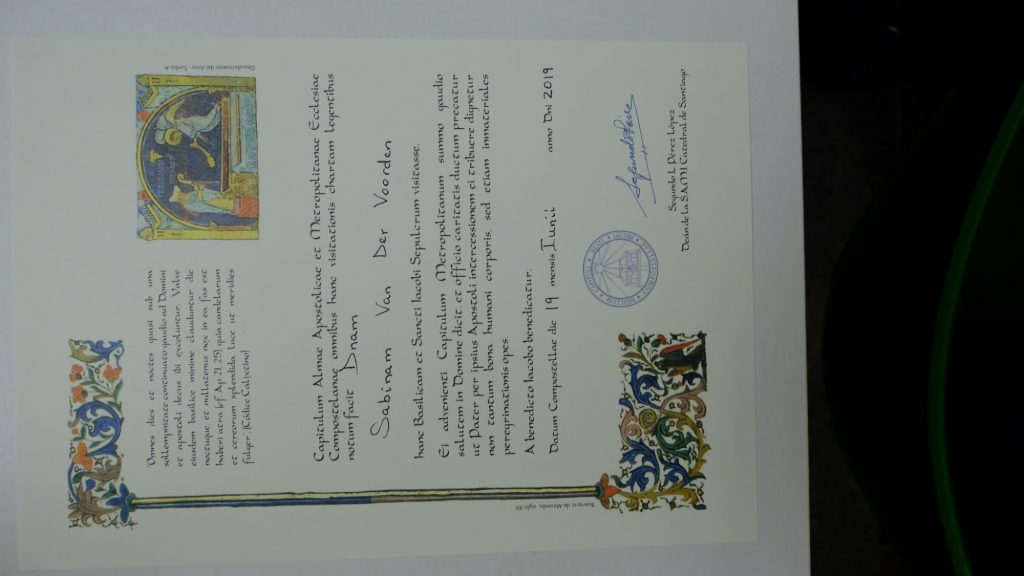 "Omnes dies et noctes quasi sub una
sollempnitate continuato gaudio ad Domini
et apostoli decus ibi excoluntur. Valve
eiusdem basilice minime clauduntur die
noctuque et nullatenus nox in ea fas est
haberi atra (cf Ap 21 25) quia candelarum
et cereorum splendida luce ut meridies
fulget" (Códice Calixtino)
Descubrimiento del Arca - Tumbo A
Capitulum Almae Apostolicae et Metropolitanae Ecclesiae
Compostelanae omnibus hanc visitationis chartam legentibus
notum facit Dnam
Sabinam Van Der Voorden
hanc Basilicam et Sancti Iacobi Sepulcrum visitasse.
Ei advenienti Capitulum Metropolitanum summo gaudio
salutem in Domine dicit et officio caritatis ductum precatur
ut Pater per ipsius Apostoli intercessionem ei tribuere dignetur
non tantum bona humani corporis, sed etiam inmateriales
peregrinationis opes.
A benedicto Iacobo benedicatur.
Datum Compostellae die 19 mensis Iunii anno Dni 2019
Segundo L. Pérez López
Deán de la S.A.M.I. Catedral de Santiago
Breviario de Miranda, siglo XV